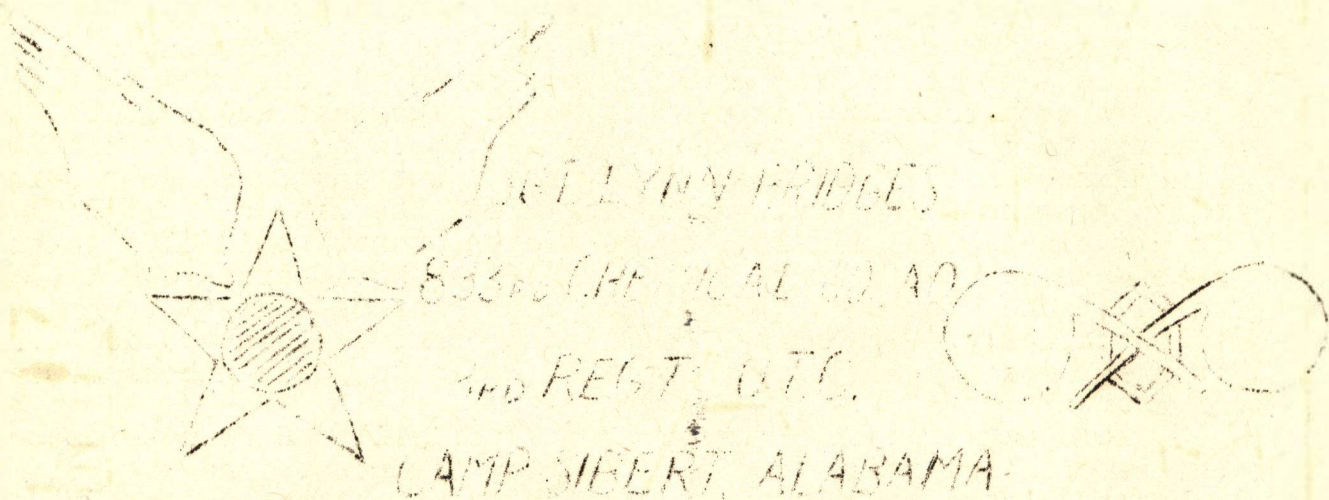 LYNN BRIDGES
833RD CHEMICAL CO. AO
REGT. U.T.C.
CAMP SIBERT, ALABAMA